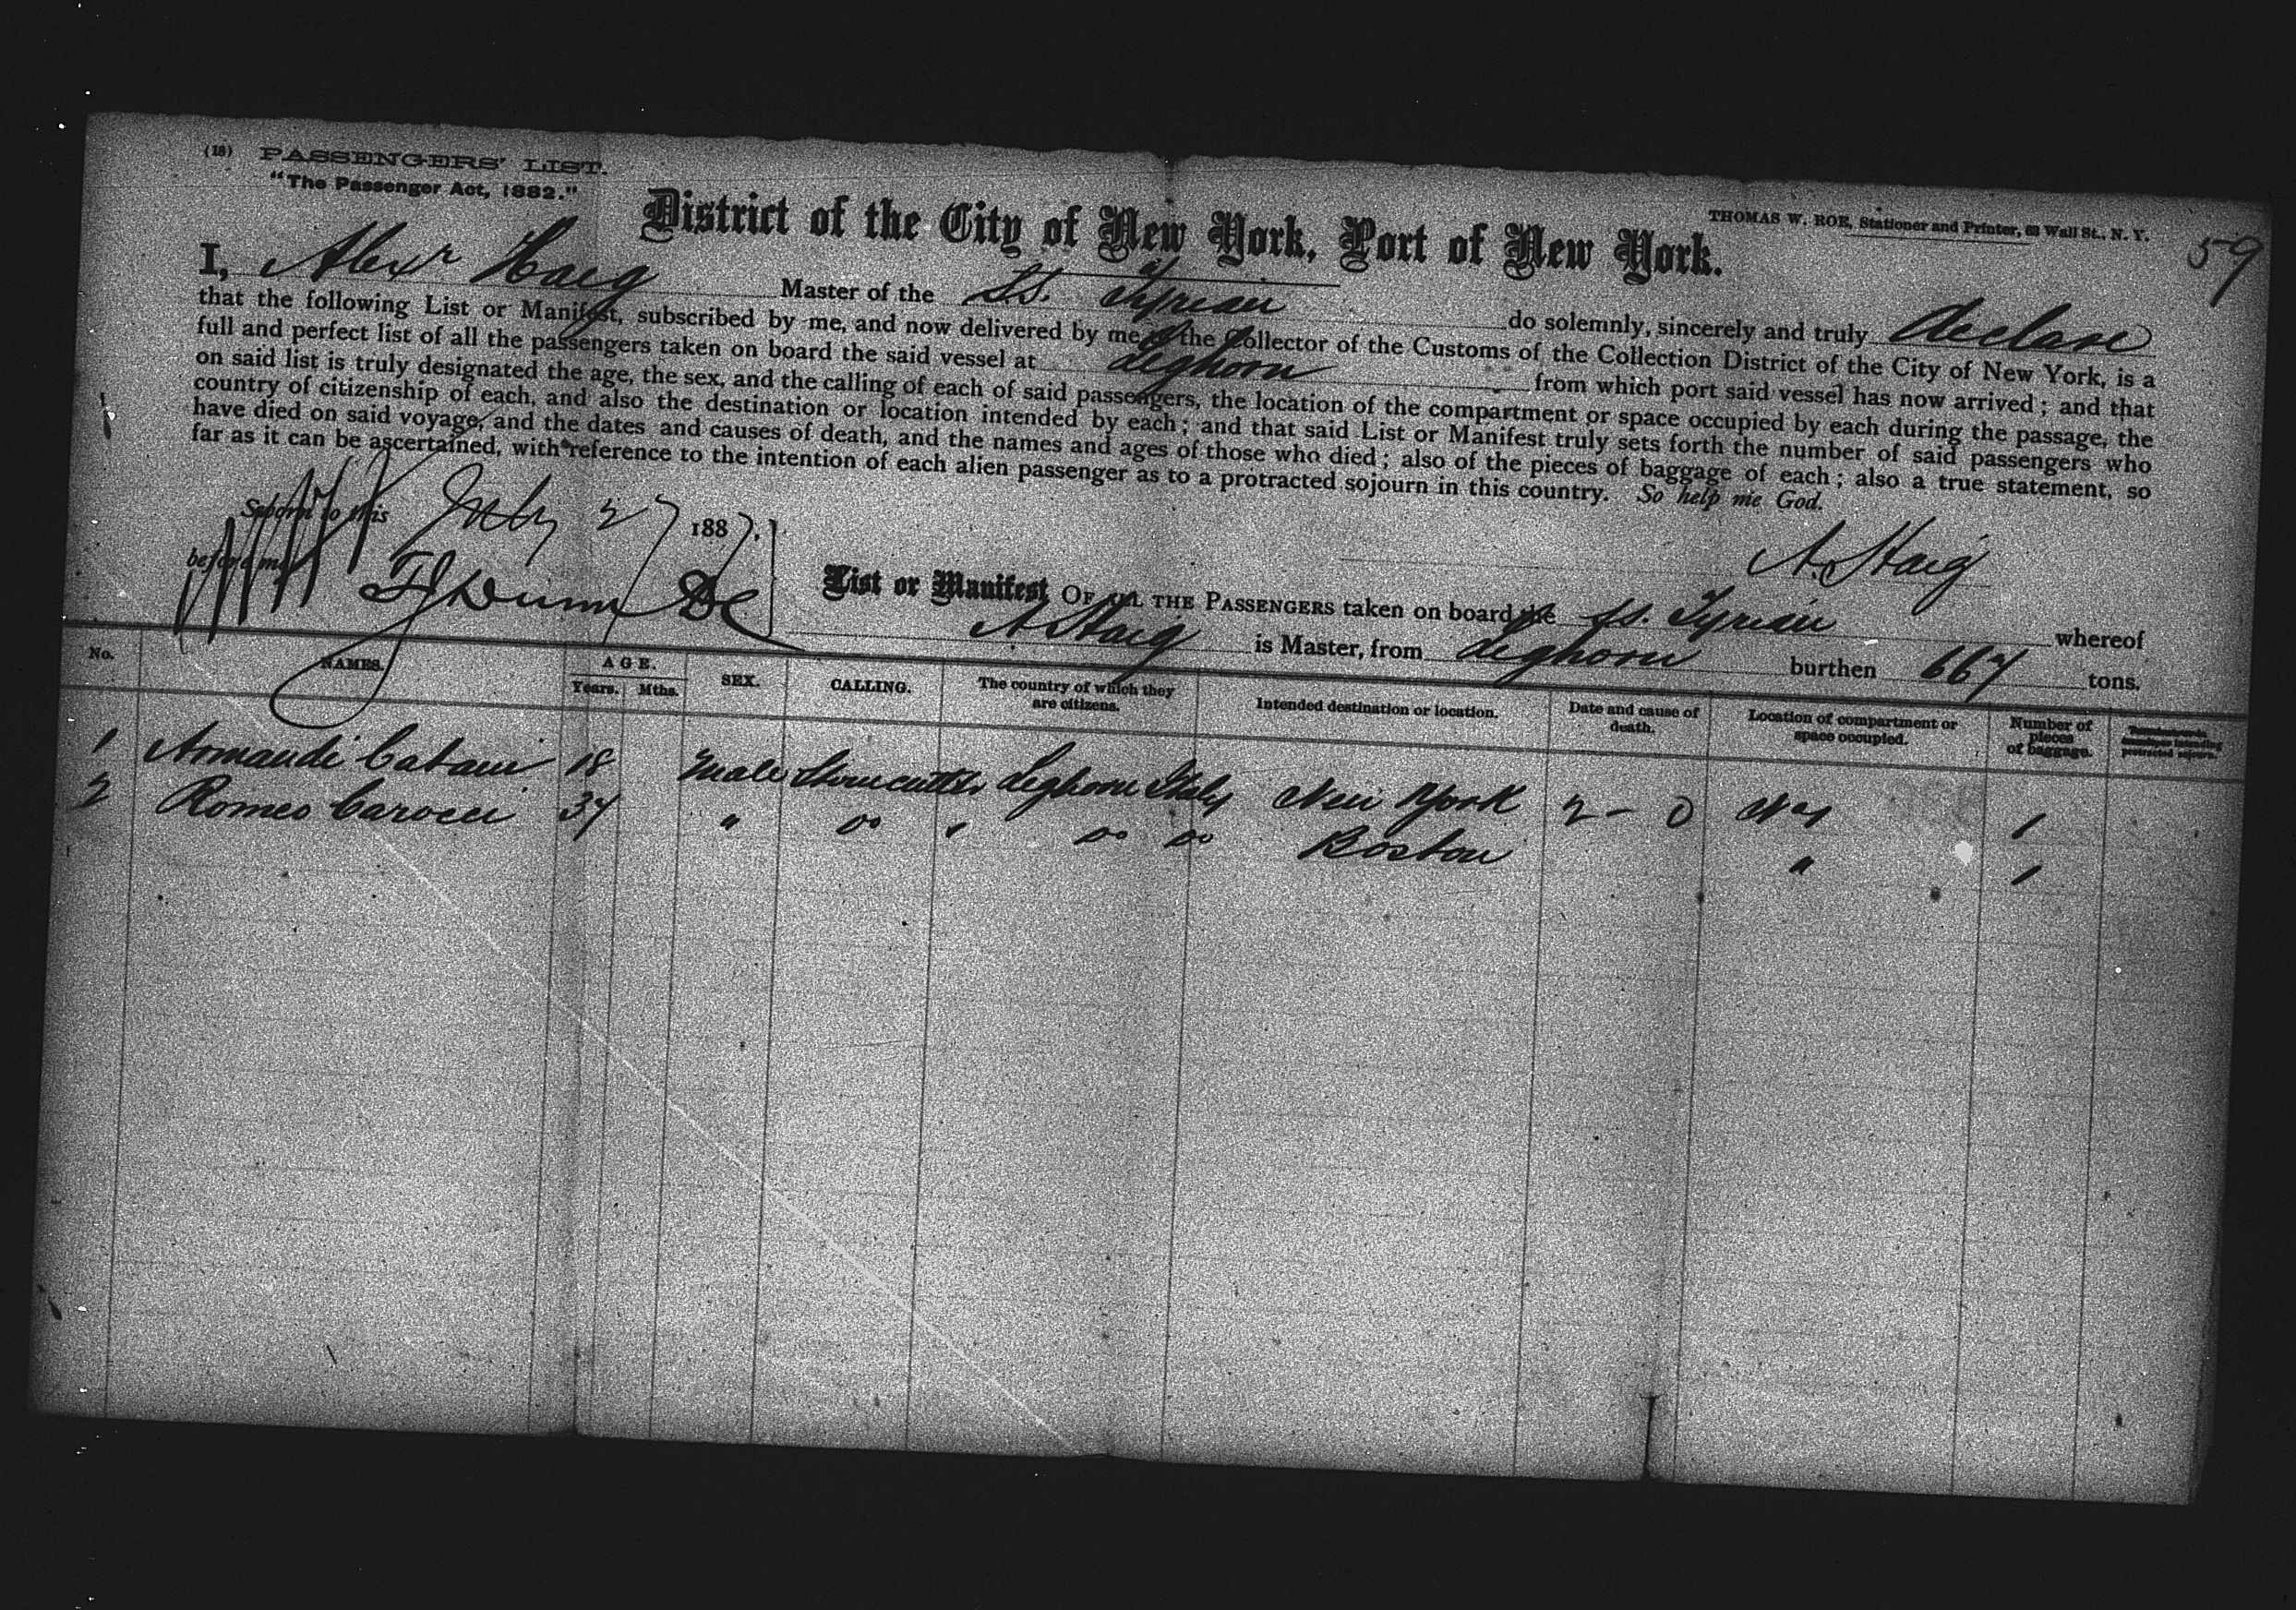 (18) PASSENGERS' LIST.
"The Passenger Act, 1882."
THOMAS W. ROE, Stationer and Printer, 63 Wall St., N. Y.
59
District of the City of New York, Port of New York.
I, Alexr Haig Master of the SS. Tyrian do solemnly, sincerely and truly declare
that the following List or Manifest, subscribed by me, and now delivered by me to the Collector of the Customs of the Collection District of the City of New York, is a
full and perfect list of all the passengers taken on board the said vessel at Leghorn from which port said vessel has now arrived; and that
on said list is truly designated the age, the sex, and the calling of each of said passengers, the location of the compartment or space occupied by each during the passage, the
country of citizenship of each, and also the destination or location intended by each; and that said List or Manifest truly sets forth the number of said passengers who
have died on said voyage, and the dates and causes of death, and the names and ages of those who died; also of the pieces of baggage of each; also a true statement, so
far as it can be ascertained, with reference to the intention of each alien passenger as to a protracted sojourn in this country. So help me God.
Sworn to this July 27 1887.
A. Haig
before me
List or Manifest OF ALL THE PASSENGERS taken on board the SS. Tyrian whereof
A Haig is Master, from Leghorn burthen 667 tons.
No. NAMES. AGE. Years. Mths. SEX. CALLING. The country of which they are citizens. Intended destination or location. Date and cause of death. Location of compartment or space occupied. Number of pieces of baggage.
1 Armandi Catani 18 Male Stonecutter Leghorn Italy New York 2 - 0 1
2 Romeo Carocci 34 " do " do do Boston " 1